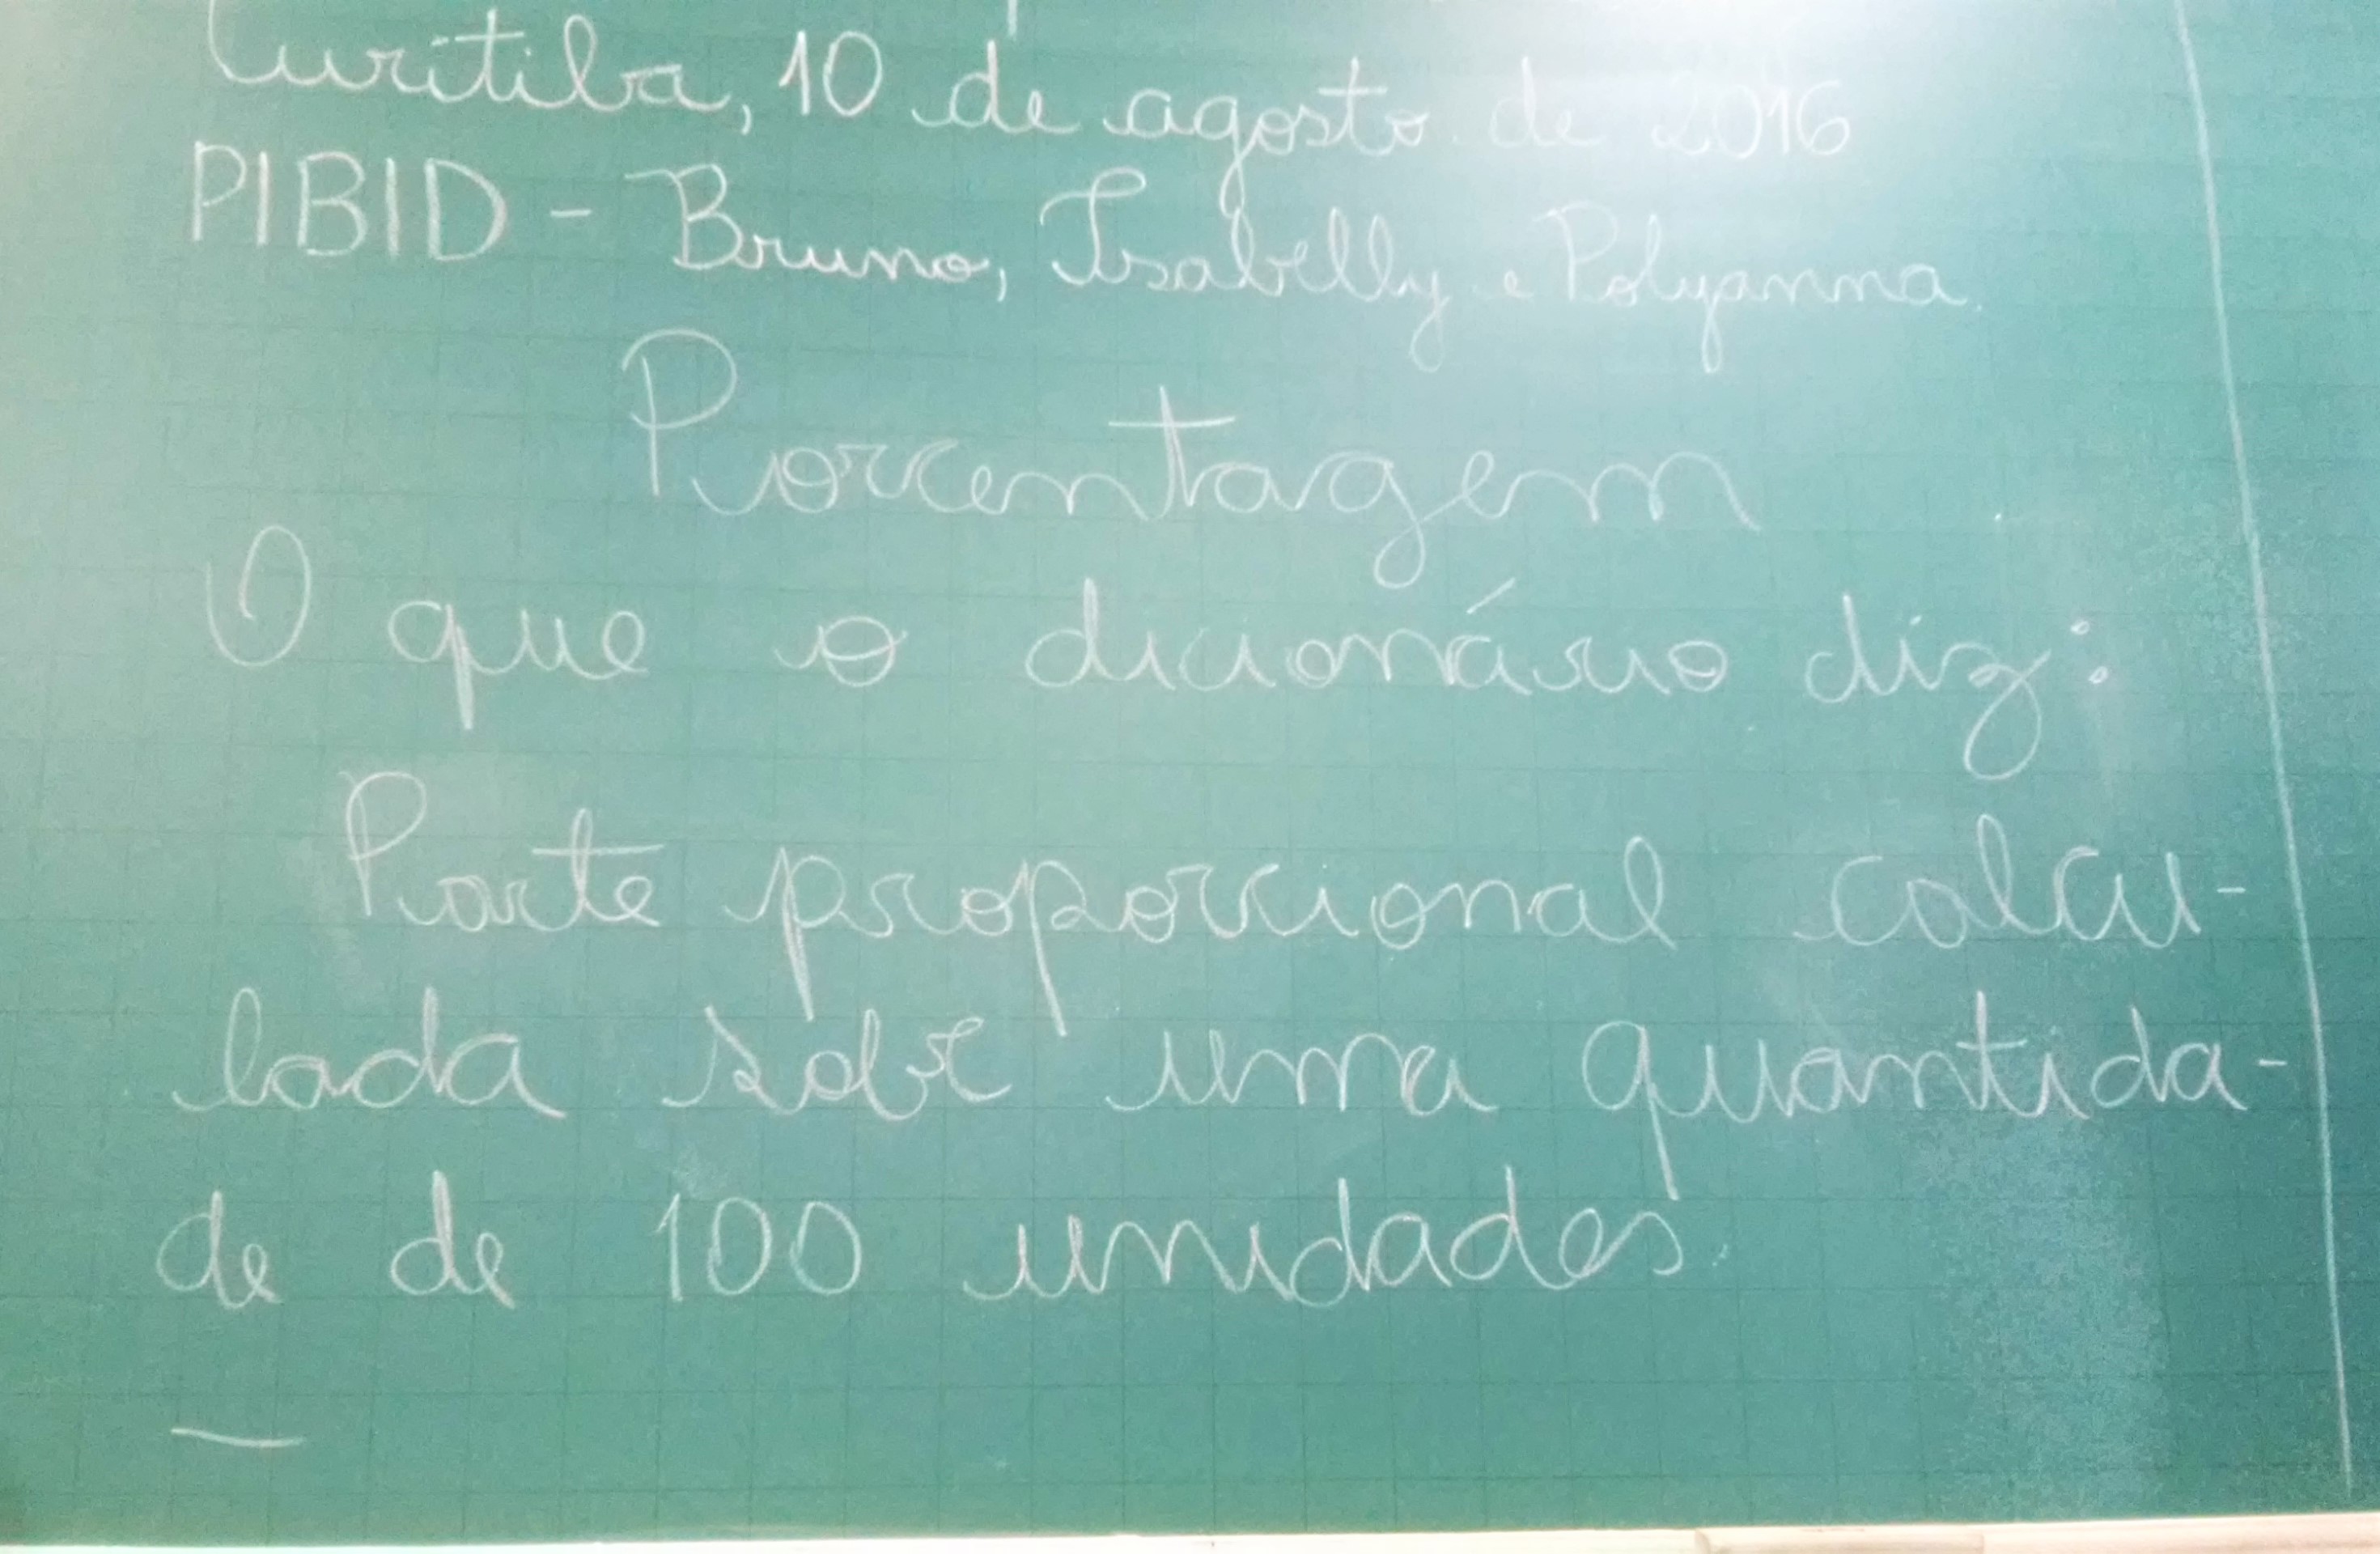 Curitiba, 10 de agosto de 2016
PIBID - Bruno, Isabelly e Polyanna.
Porcentagem
O que o dicionário diz:
Parte proporcional calcu-
lada sobre uma quantida-
de de 100 unidades.